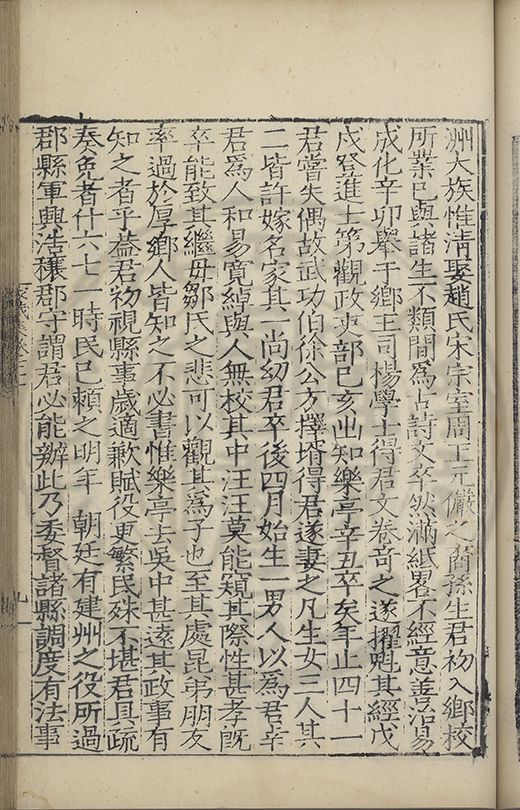 洲大族惟清娶趙氏宋宗室周王元儼之裔孫生君初入鄉校
所業已與諸生不類間爲古詩文卒然滿紙畧不經意善治易
成化辛卯舉于鄉主司楊學士得君文卷奇之遂擢魁其經戊
戌登進士第觀政吏部己亥出知樂亭辛丑卒矣年止四十一
君嘗失偶故武功伯徐公方擇壻得君遂妻之凡生女三人其
二皆許嫁名家其一尚幼君卒後四月始生一男人以爲君幸
君爲人和易寛綽與人無校其中汪汪莫能窺其際性甚孝旣
卒能致其繼毋鄒氏之悲可以觀其爲子也至其處昆弟朋友
率過於厚鄉人皆知之不必書惟樂亭去吳中甚遠其政事有
知之者乎葢君初視縣事歲適歉賦役更繁民殊不堪君具疏
奏免者什六七一時民已頼之明年 朝廷有建州之役所過
郡縣軍興浩穰郡守謂君必能辦此乃委督諸縣調度有法事